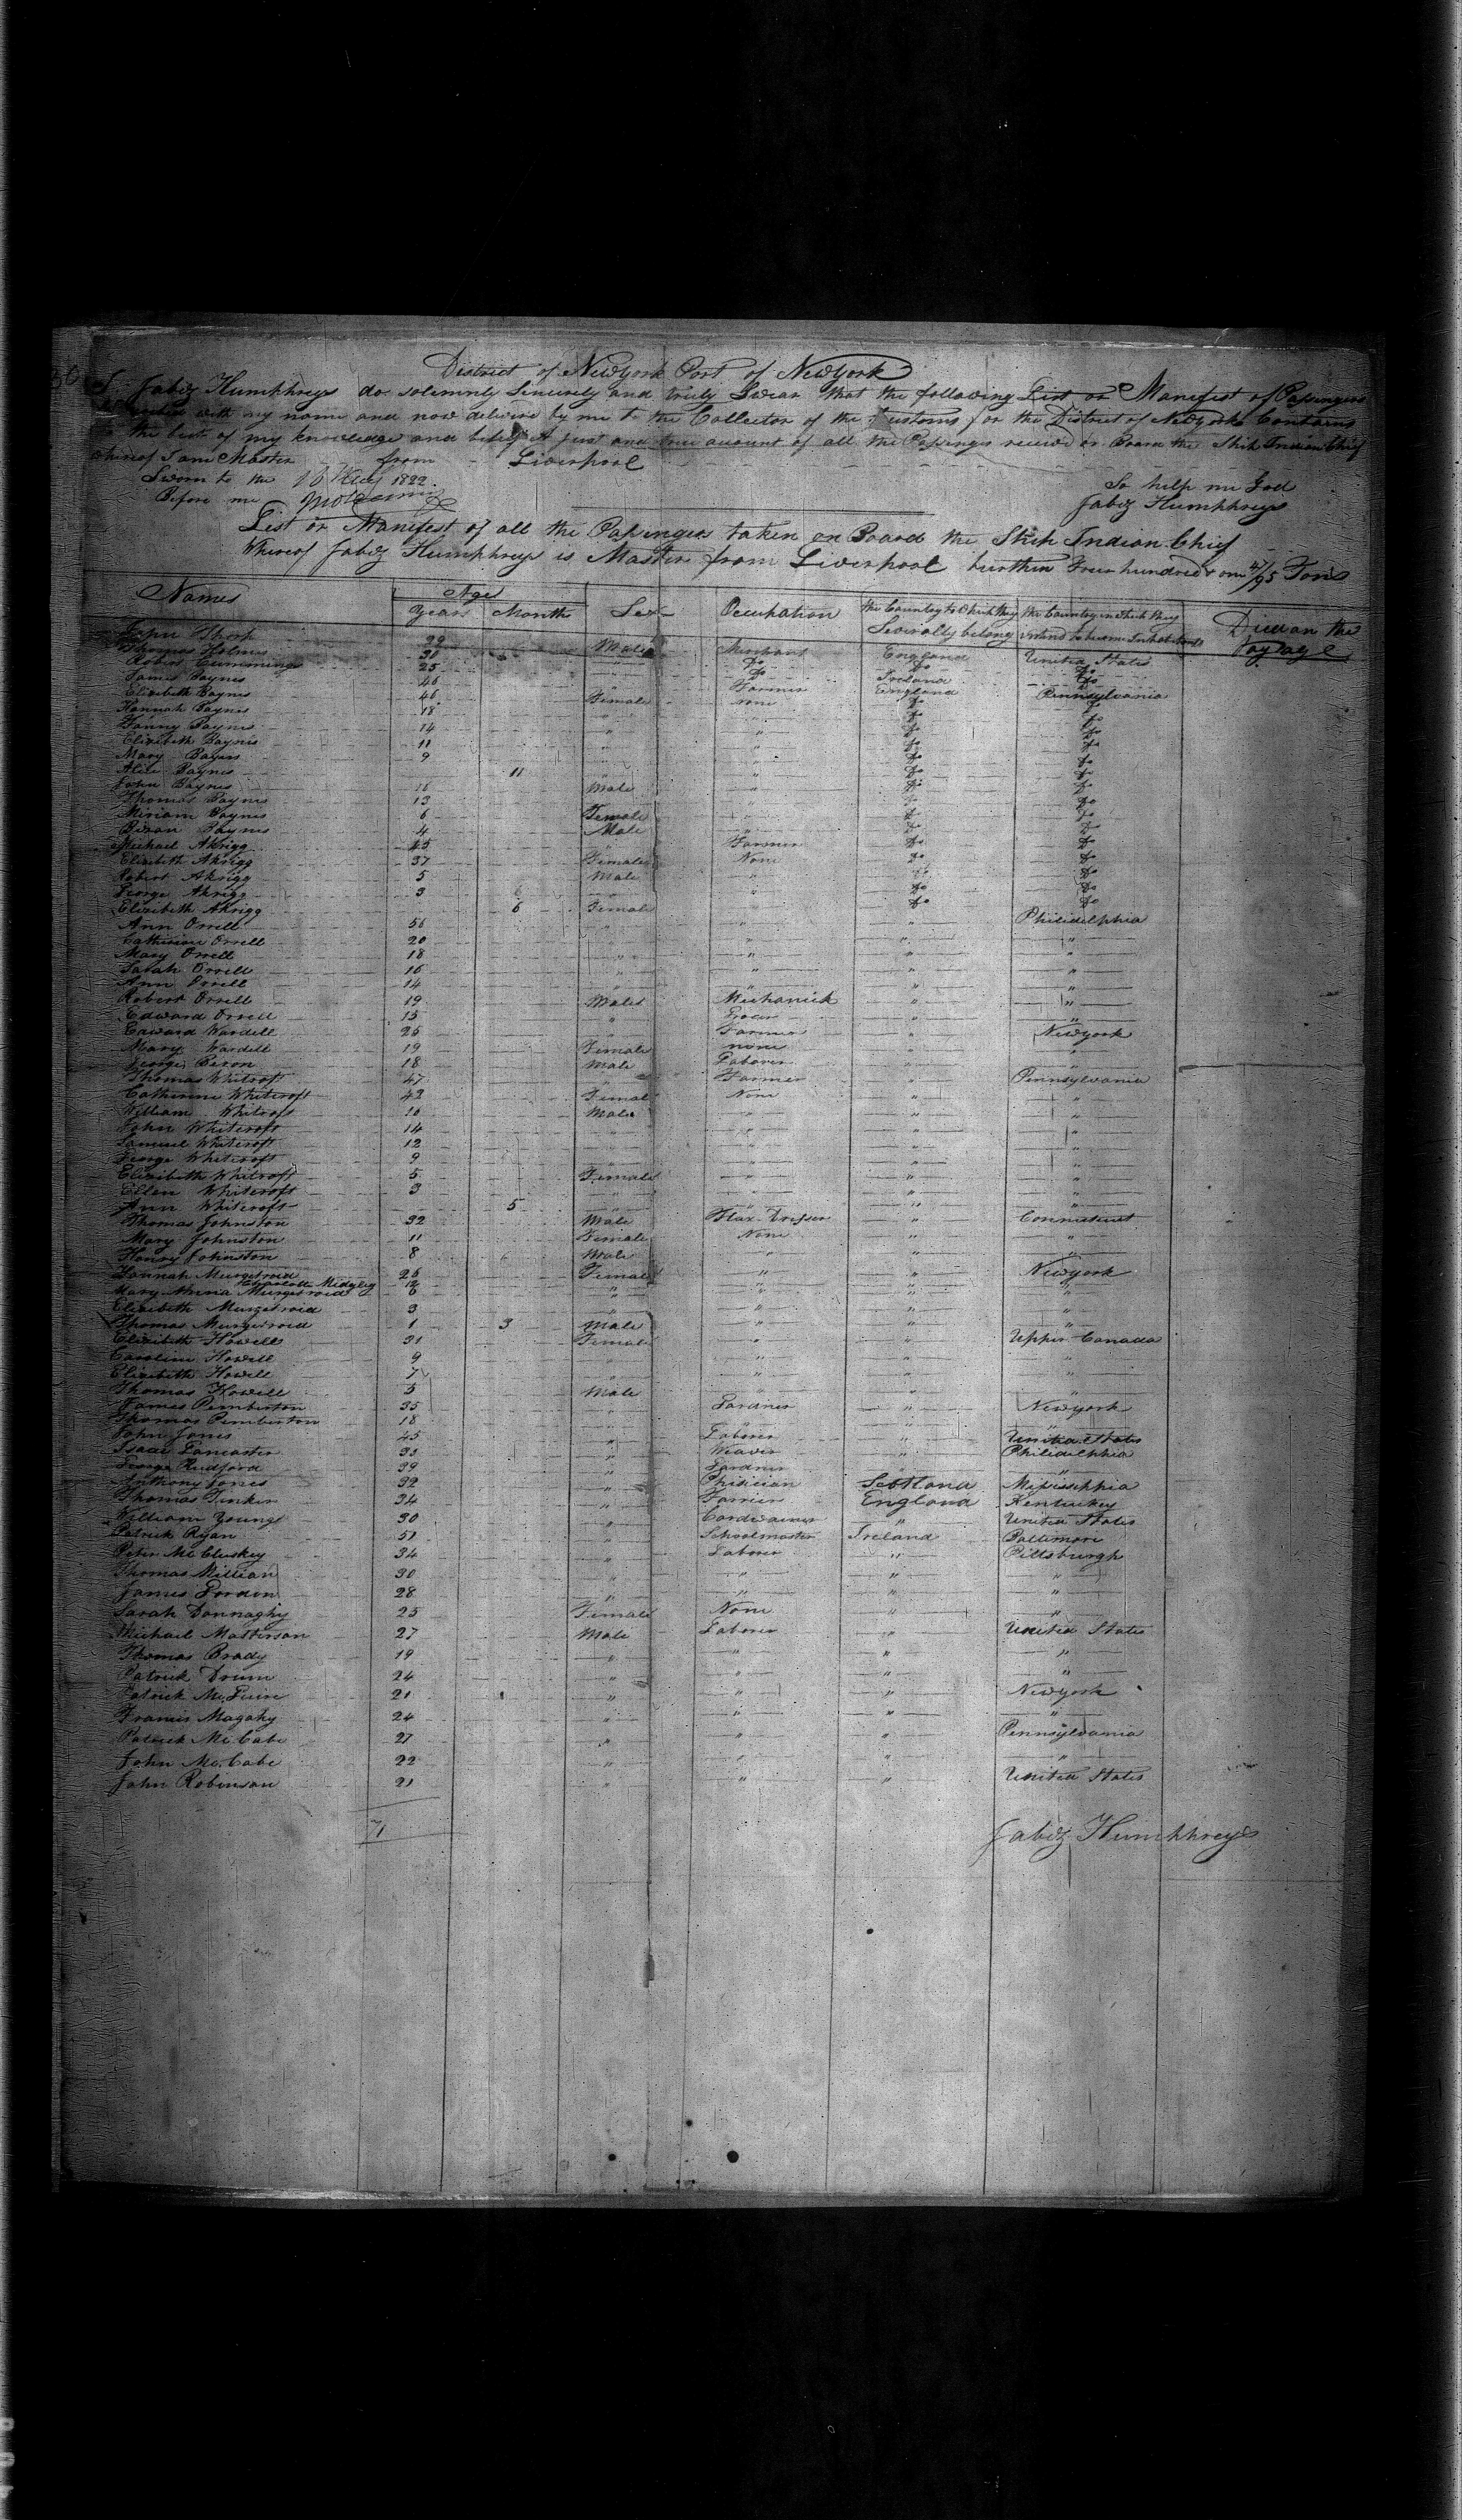 District of Newyork Port of Newyork
I Jabez Humphreys do solemnly Sincerely and truly Swear that the following List or Manifest of Passengers
with my name and now deliverd by me to the Collector of the Customs for the District of Newyork Contains
to the best of my knowledge and belief A just and true account of all the Passengers received on Board the Ship Indian Chief
whereof I am Master from Liverpool
Sworn to the 1822
So help me God
Before me
Jabez Humphreys
List or Manifest of all the Passengers taken on Board the Ship Indian Chief
Whereof Jabez Humphreys is Master from Liverpool burthen hundred & one /95 Tons
Names Age Years Month Sex Occupation the Country to Which they Severally belong the Country in Which they intend to become Inhabitants Died on the Voyage
John 29 Male Merchant England United States
Thomas Holmes 30 Do Do Do
Robert Cummings 25 Do Ireland Do
James Baynes 46 Farmer England Pennsylvania
Elizabeth Baynes 46 Female none Do Do
Hannah Baynes 18 " " Do Do
Fanny Baynes 14 " " Do Do
Elizabeth Baynes 11 " " Do Do
Mary Baynes 9 " " Do Do
Alice Baynes 11 " " Do Do
John Baynes 16 Male " Do Do
Thomas Baynes 13 " " Do Do
Miriam Baynes 6 Female " Do Do
Baynes 4 Male " Do Do
Michael Akrigg 45 " Farmer Do Do
Elizabeth Akrigg 37 Female None Do Do
Robert Akrigg 5 Male " Do Do
George Akrigg 3 " " Do Do
Elizabeth Akrigg 6 Female " Do Do
Ann Orrell 56 " " " Philidelphia
Catherine Orrell 20 " " " "
Mary Orrell 18 " " " "
Sarah Orrell 16 " " " "
Ann Orrell 14 " " " "
Robert Orrell 19 Males Mechanick " "
Edward Orrell 15 " " "
Edward Wardell 25 " Farmer " Newyork
Mary Wardell 19 Female none " "
George 18 Male Laborer " "
Thomas Whitcroft 47 " Farmer " Pennsylvania
Catherine Whitcroft 42 Female None " "
William Whitcroft 16 Male " " "
John Whitcroft 14 " " " "
Samuel Whitcroft 12 " " " "
George Whitcroft 9 " " " "
Elizabeth Whitcroft 5 Female " " "
Ellen Whitcroft 3 " " " "
Ann Whitcroft 5 " " " "
Thomas Johnston 32 Male Flax Dresser " Connecticut
Mary Johnston 11 Female None " "
Henry Johnston 8 Male " " "
Hannah Murgetroid 26 Female " " Newyork
Charlotte Midgley 12 " " " "
Mary Anna Murgetroid 6 " " " "
Elizabeth Murgetroid 3 " " " "
Thomas Murgetroid 1 3 Male " " "
Elizabeth Howell 31 Female " " Upper Canada
Caroline Howell 9 " " " "
Elizabeth Howell 7 " " " "
Thomas Howell 5 Male " " "
James Pemberton 35 " Gardner " Newyork
Thomas Pemberton 18 " " " "
John Jones 45 " Laborer " United States
Isaac Lancaster 33 " Weaver " Philidelphia
George Rudford 39 " Gardner " "
Anthony Jones 32 " Phisician Scottland Mississippia
Thomas Tinker 34 " Farrier England Kentuckey
William Young 30 " Cordwainer " United States
Patrick Ryan 51 " Schoolmaster Ireland Baltimore
Peter Mc Cluskey 34 " Laborer " Pittsburgh
Thomas Millian 30 " " " "
James 28 " " " "
Sarah Donnaghy 25 Female None " "
Michael Masterson 27 Male Laborer " United States
Thomas Brady 19 " " " "
Patrick Drum 24 " " " "
Patrick Mc Guire 21 " " " Newyork
Francis Magahy 24 " " " "
Patrick Mc Cabe 27 " " " Pennsylvania
John Mc Cabe 22 " " " "
John Robinson 21 " " " United States
71
Jabez Humphreys